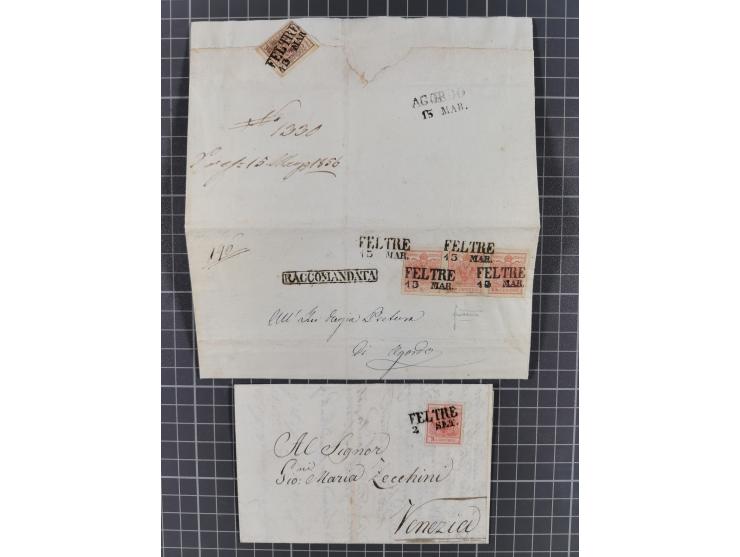 FELTRE
13 MAR.
AGORDO
15 MAR.
No 1330
15 1856
190
FELTRE
13 MAR.
FELTRE
13 MAR.
FELTRE
13 MAR.
FELTRE
MAR.
RACCOMANDATA
All' Pretura
di Agordo
FELTRE
2 SET.
Al Signor
Gio: ni Maria Zecchini
Venezia